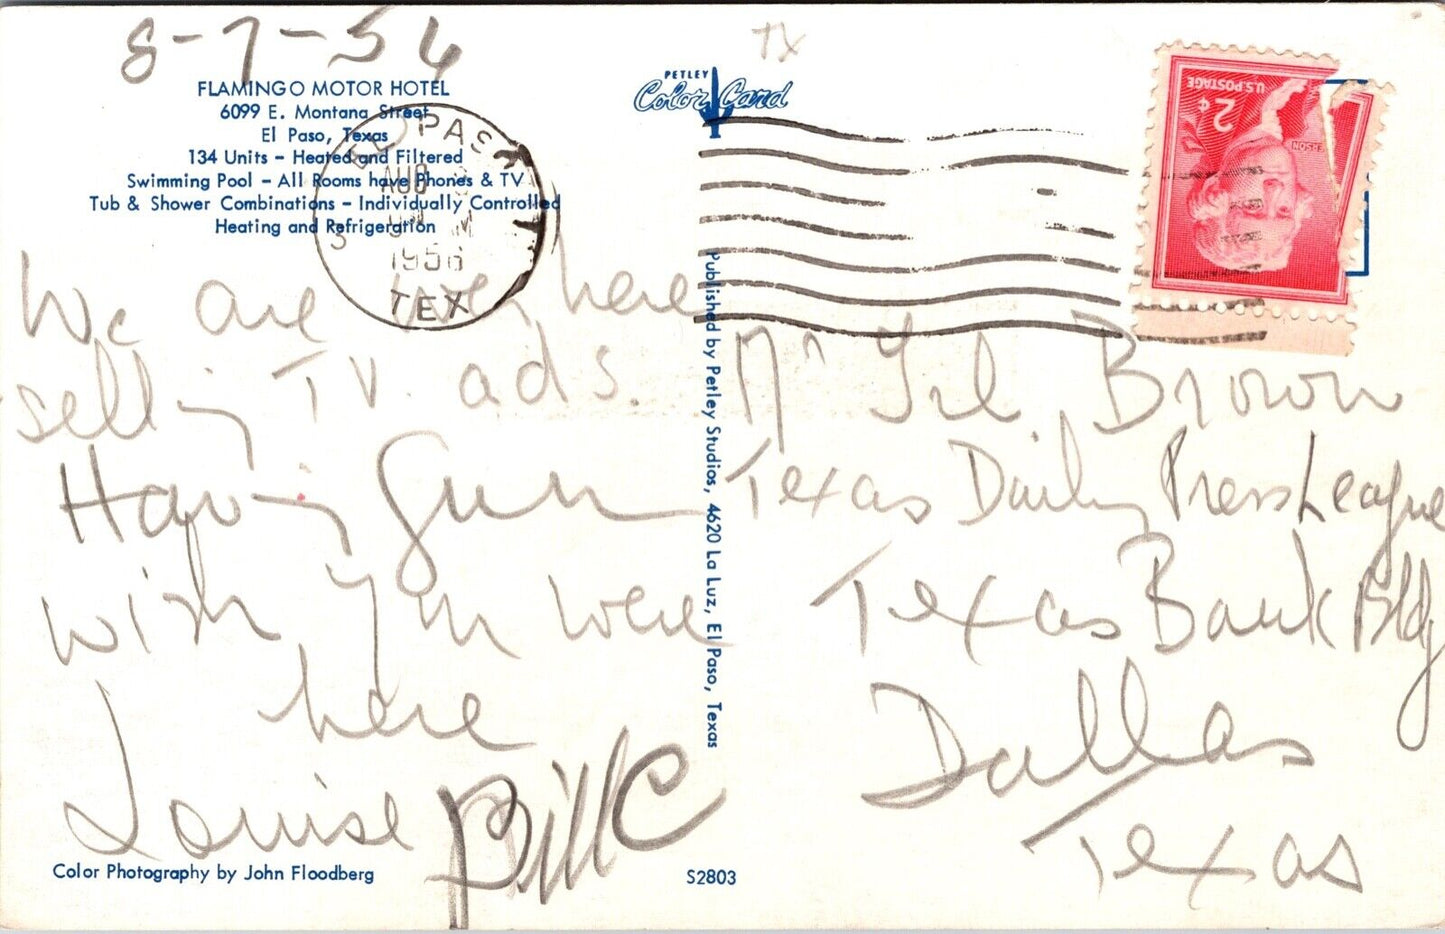 8-7-56
TX
FLAMINGO MOTOR HOTEL
6099 E. Montana Street
El Paso, Texas
134 Units – Heated and Filtered
Swimming Pool – All Rooms have Phones & TV
Tub & Shower Combinations – Individually Controlled
Heating and Refrigeration
PETLEY
Color Card
EL PASO
AUG
1956
TEX
U.S. POSTAGE
2¢
We are over here
selling TV. ads.
Having fun
wish you were
here
Louise Bill C
Color Photography by John Floodberg
Published by Petley Studios, 4620 La Luz, El Paso, Texas
S2803
Mr Brown
Texas Daily Press League
Texas Bank Bldg
Dallas
Texas